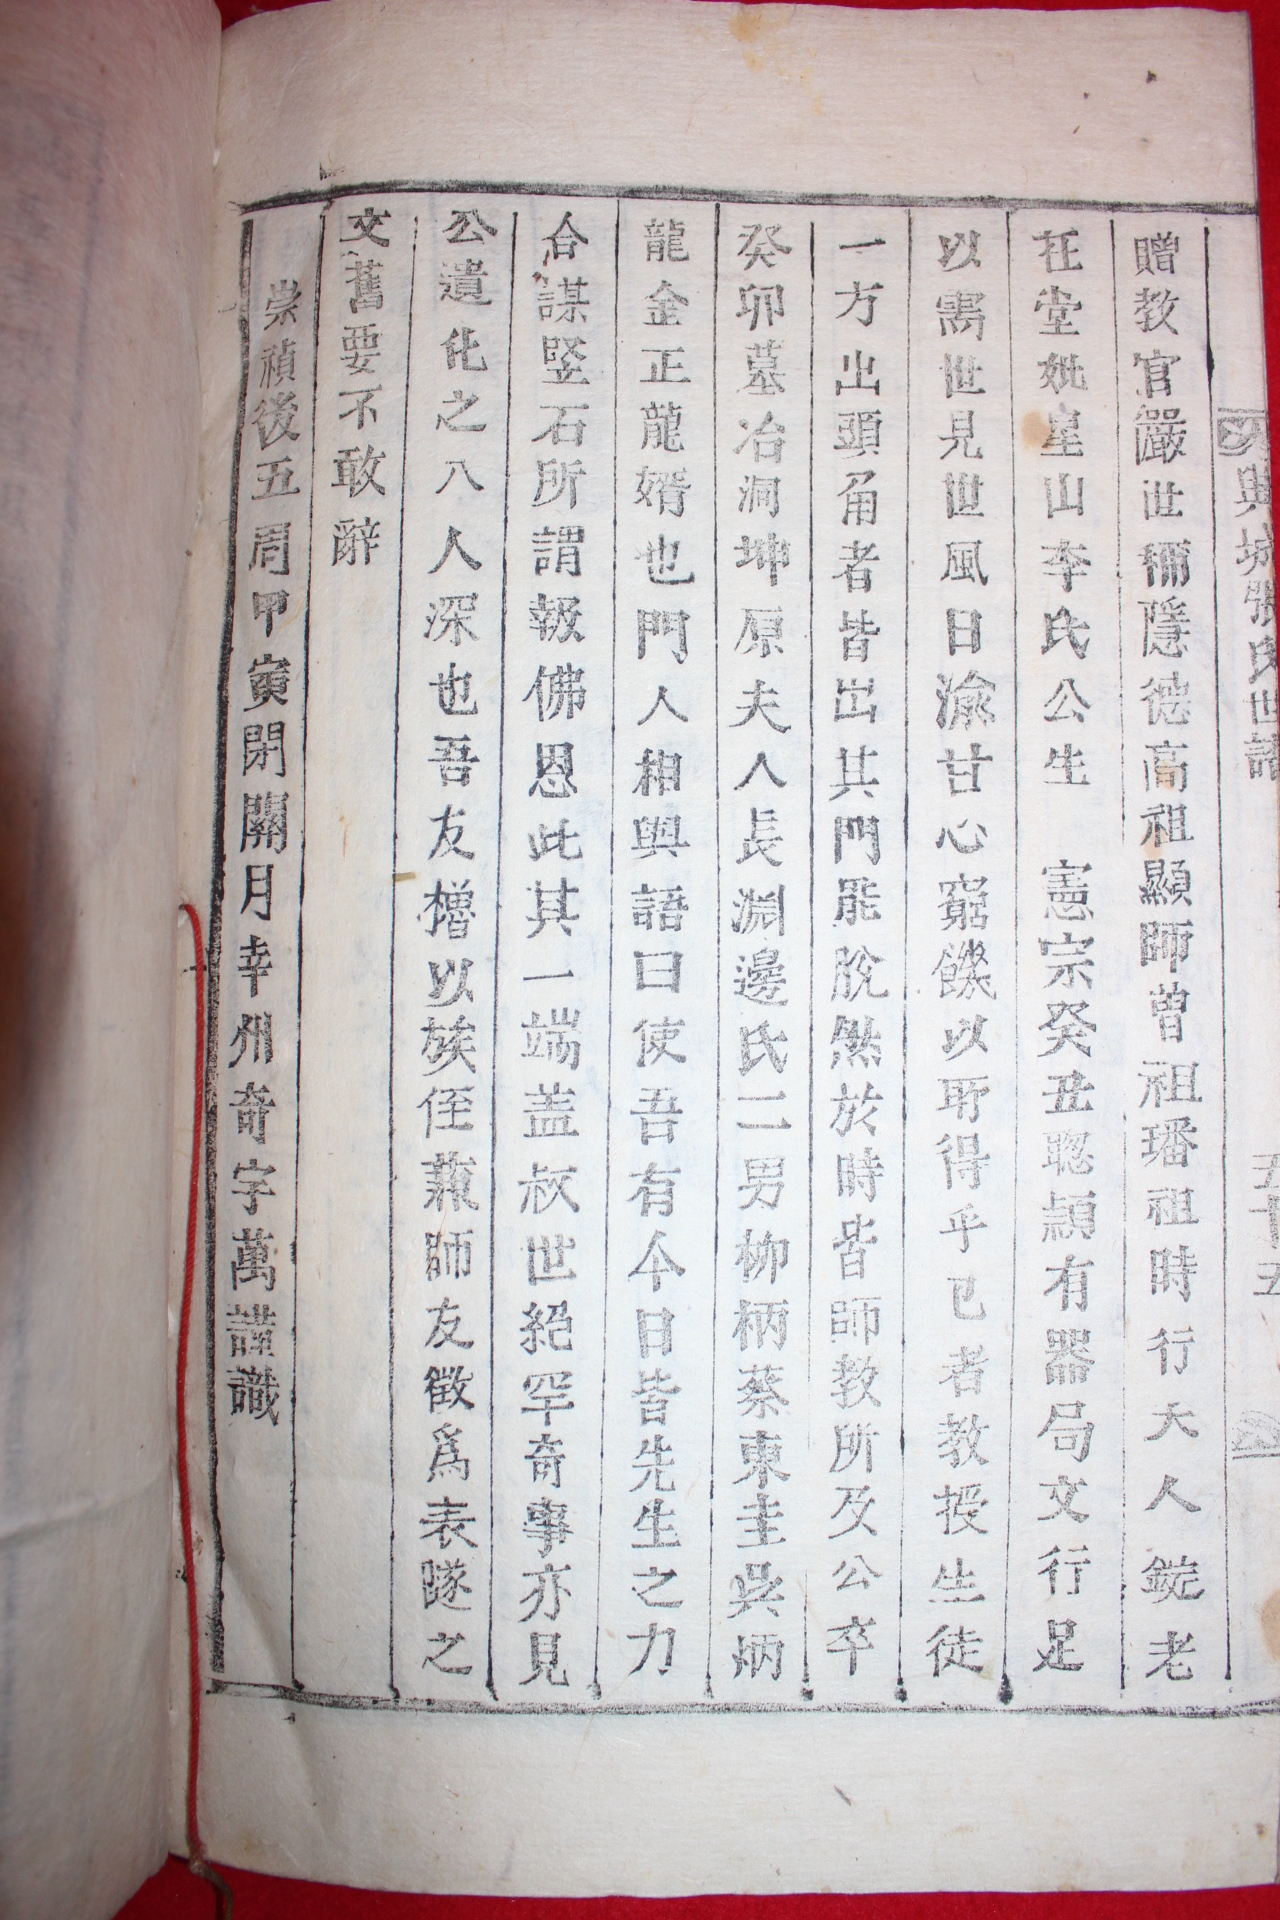 興城張氏世譜 五十五
贈教官嚴世稱隱德高祖顯師曾祖璠祖時行大人錠老
在堂妣星山李氏公生 憲宗癸丑聰頴有器局文行足
以需世見世風日渝甘心窮餓以所得乎已者教授生徒
一方出頭角者皆出其門罷脫然於時皆師教所及公卒
癸卯墓冶洞坤原夫人長淵邊氏二男柳柄蔡東圭吳炳
龍金正龍婿也門人相與語曰使吾有今日皆先生之力
合謀竪石所謂報佛恩此其一端盖叔世絕罕奇事亦見
公遺化之入人深也吾友櫓以族侄兼師友徵爲表隧之
文舊要不敢辭
崇禎後五周甲寅閉關月幸州奇宇萬謹識